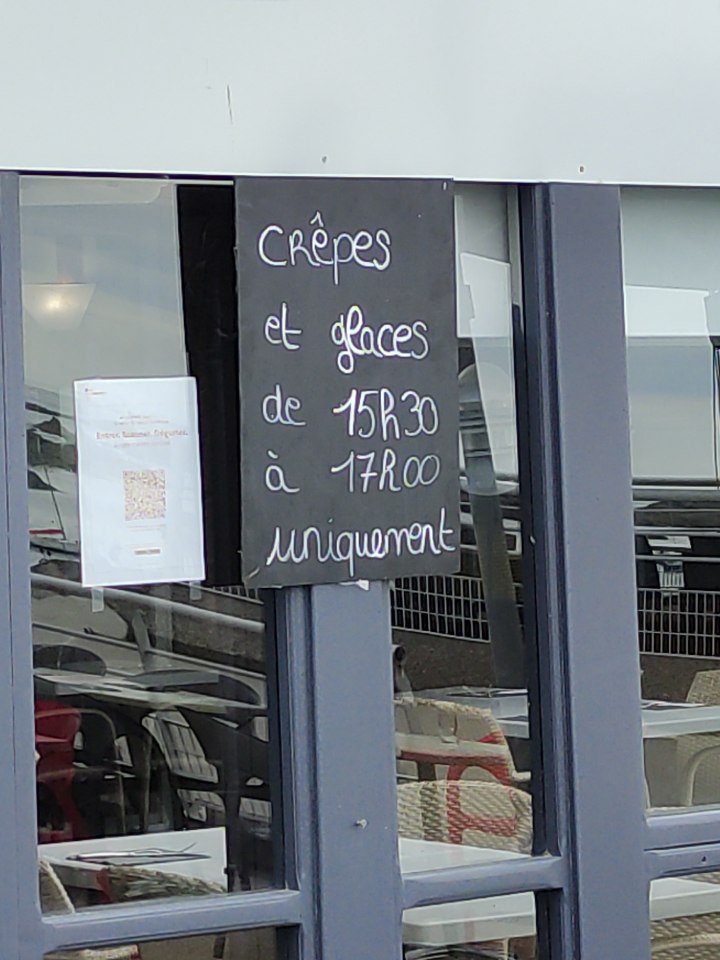 Crêpes
et glaces
de 15h30
à 17h00
uniquement
Entrez, Scannez, Dégustez.